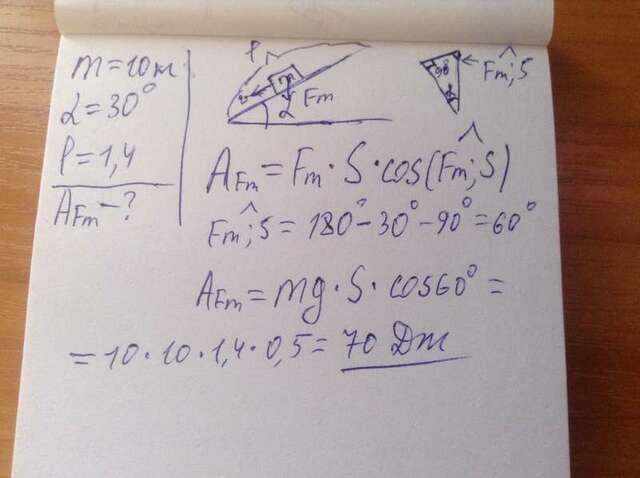 m=10кг
α=30°
l=1,4
Aₘ-?
l
m
α
Fт
90°
α
Fт;S
AFт=Fт·S·cos(Fт;S)
Fт;S=180°-30°-90°=60°
AFт=mg·S·cos60°=
=10·10·1,4·0,5=70 Дж